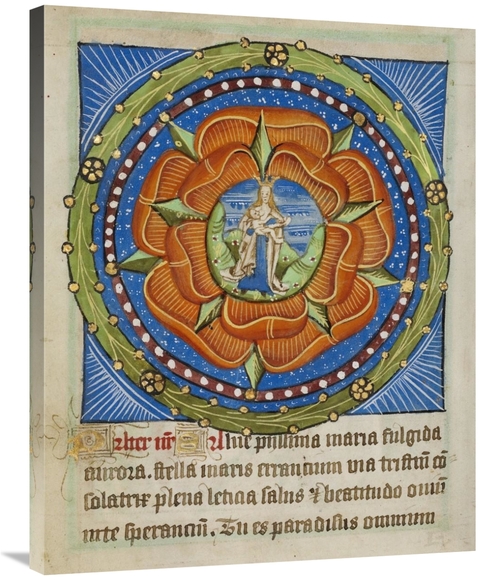 Pater nr̄ Aue piissima maria fulgida
aurora. stella maris errancium via tristiū cō
solatrix plena leticia salus & beatitudo oīm
in te speranciū. Tu es paradisus omnium